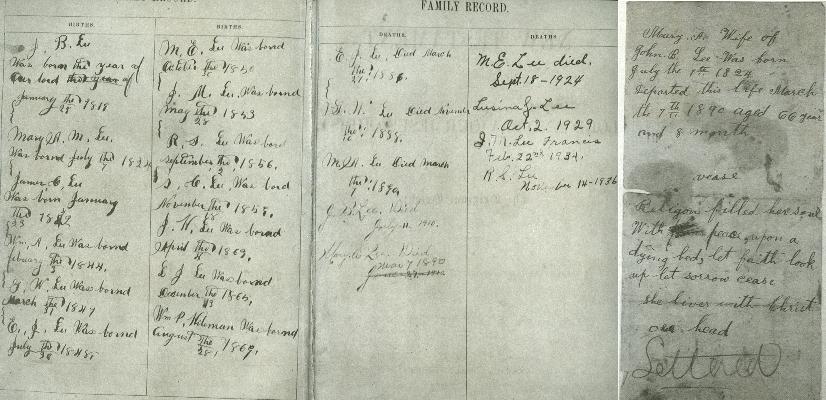 FAMILY RECORD.
BIRTHS.
J. B. Lee
Was born the year of
Our lord that year of
January the 1818
Mary A. M. Lee,
Was bornd July the 1 1824
James C, Lee
Was born January
the 23
Wm, A, Lee Was bornd
february the 3 1844.
G, W, Lee Was bornd
March the 31 1847
E, J. Lee Was bornd
July the 1848.
BIRTHS.
M. E, Lee Was bornd
October the 1850
J. M, Lee, Was bornd
may the 28 1853
R, S, Lee Was bord
september the 1856.
S, C, Lee, Was bord
November the 18 1858,
J. W, Lee Was bornd
April the 1862,
L J Lee Was bornd
December the 1865,
Wm P, Was bornd
August the 28 1869.
FAMILY RECORD.
DEATHS.
E J. Lee, Died March
the 1886.
W. Lee Died
the 1888.
M, A. Lee Died march
the 7 1890
J. B. Lee. Died
July 1910.
Lee Died
Mar 7 1890
DEATHS
M. E. Lee died.
Sept. 18 - 1924
Lusina J. Lee
Oct. 2. 1929
J. M. Lee Francis
Feb. 22nd 1934.
R. S. Lee
November 14-1936
Mary. A. Wife of
John. B. Lee - Was born
July the 1st 1824
Departed this life March
the 7th 1890 aged 66 year
and 8 month
vease
Religion filled her soul
With peace, upon a
dying bed, let faith look
up let sorrow cease
she lives with Christ
our head
Lettered